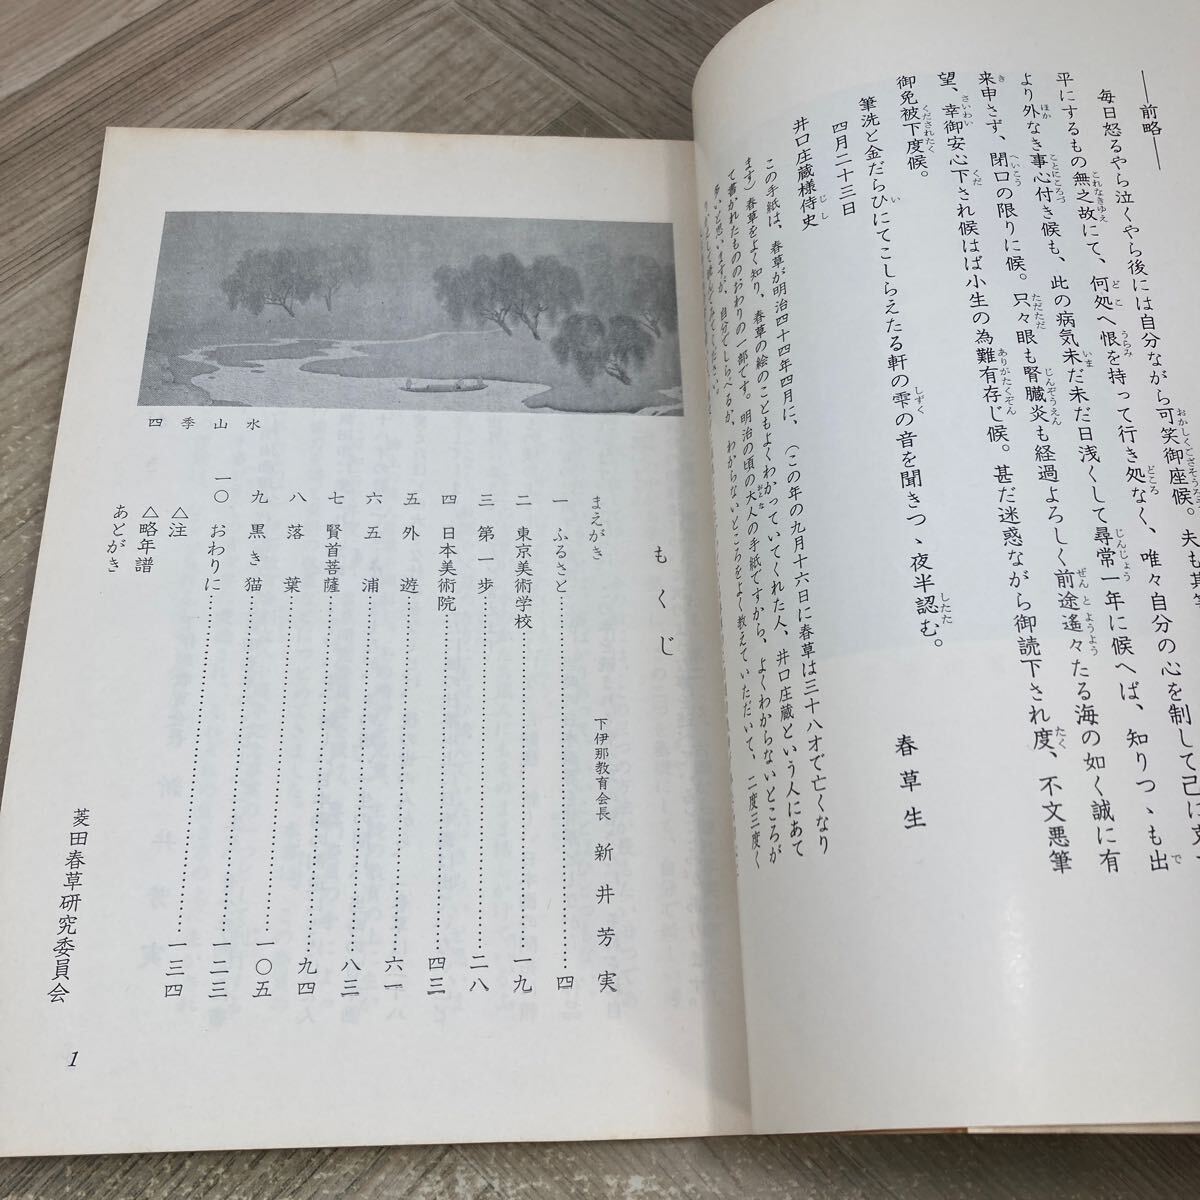 ――前略――
毎日怒るやら泣くやら後には自分ながら可笑御座候。夫も其筆
平にするもの無之故にて、何処へ恨を持って行き処なく、唯々自分の心を制して己に克つ
より外なき事心付き候も、此の病気未だ未だ日浅くして尋常一年に候へば、知りつゝも出
来申さず、閉口の限りに候。只々眼も腎臓炎も経過よろしく前途遙々たる海の如く誠に有
望、幸御安心下され候はば小生の為難有存じ候。甚だ迷惑ながら御読下され度、不文悪筆
御免被下度候。
筆洗と金だらひにてこしらえたる軒の雫の音を聞きつゝ夜半認む。
四月二十三日
春草生
井口庄蔵様侍史
この手紙は、春草が明治四十四年四月に、(この年の九月十六日に春草は三十八才で亡くなり
ます)春草をよく知り、春草の絵のこともよくわかっていてくれた人、井口庄蔵という人にあて
て書かれたもののおわりの一部です。明治の頃の大人の手紙ですから、よくわからないところが
多いと思いますが、自分でしらべるか、わからないところをよく教えていただいて、二度三度く
四季山水
もくじ
まえがき 下伊那教育会長 新井芳実
一 ふるさと………四
二 東京美術学校………一九
三 第一歩………二八
四 日本美術院………四三
五 外遊………六一
六 五浦………八三
七 賢首菩薩………九四
八 落葉………一〇五
九 黒き猫………一二三
一〇 おわりに………一三四
△注
△略年譜
あとがき
菱田春草研究委員会
1